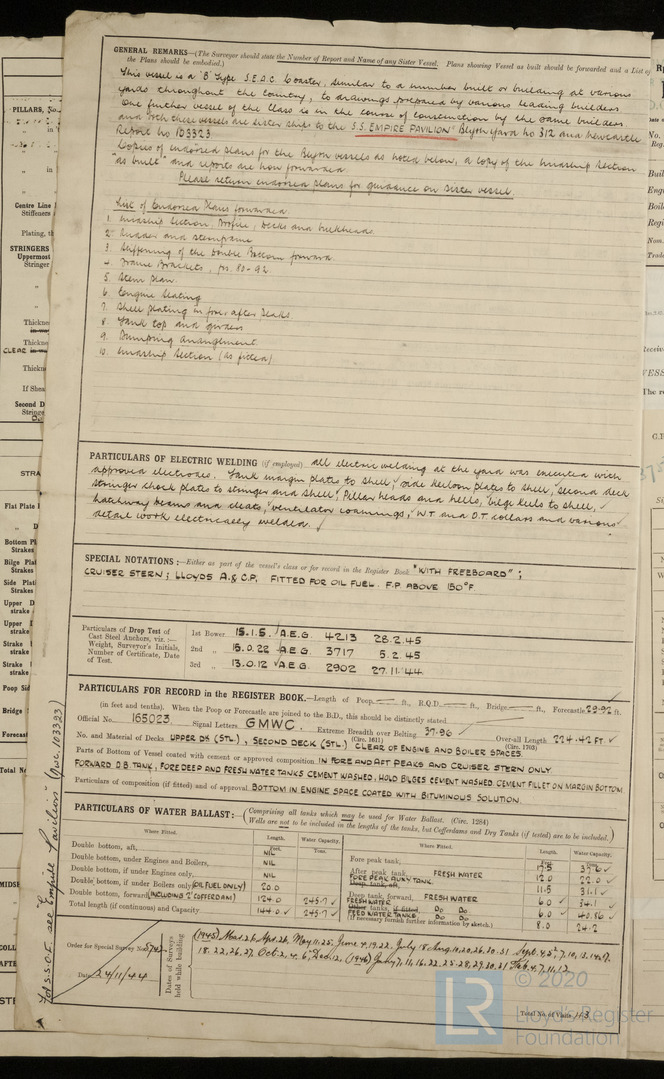 GENERAL REMARKS—(The Surveyor should state the Number of Report and Name of any Sister Vessel. Plans showing Vessel as built should be forwarded and a List of
the Plans should be embodied.)
This vessel is a 'B' Type S.E.A.C. Coaster, similar to a number built or building at various
yards throughout the country, to drawings prepared by various leading builders
One further vessel of the Class is in the course of construction by the same builders
and both these vessels are sister ships to the S.S. EMPIRE PAVILION Blyth Yard No 312 and Newcastle
Report No 103323
Copies of endorsed plans for the Blyth vessels as noted below, a copy of the midship section
"as built" and reports are now forwarded
Please return endorsed plans for guidance on sister vessel.
List of Endorsed Plans forwarded.
1. Midship Section, Profile, Decks and bulkheads
2. Rudder and sternframe
3. Stiffening of the Double Bottom forward.
4. Frame Brackets, frs. 80-92
5. Stem plan.
6. Engine Seating
7. Shell plating in fore & after peaks.
8. Tank top and girders
9. Pumping arrangement.
10. Midship Section (as fitted)
PARTICULARS OF ELECTRIC WELDING (if employed) All electric welding at the yard was executed with
approved electrodes. Tank margin plates to shell, side keelson plates to shell, second deck
stringer chock plates to stringer and shell, Pillar heads and heels, bilge keels to shell,
hatchway beams and cleats, ventilator coamings, W.T. and O.T. collars and various
detail work electrically welded.
SPECIAL NOTATIONS:—Either as part of the vessel's class or for record in the Register Book "WITH FREEBOARD";
CRUISER STERN; LLOYDS A.& C.P. FITTED FOR OIL FUEL. F.P. ABOVE 150°F
Particulars of Drop Test of
Cast Steel Anchors, viz.:—
Weight, Surveyor's Initials,
Number of Certificate, Date
of Test.
1st Bower 15.1.5. A.E.G. 4213 28.2.45
2nd „ 15.0.22 A.E.G. 3717 5.2.45
3rd „ 13.0.12 A.E.G. 2902 27.11.44
PARTICULARS FOR RECORD in the REGISTER BOOK.—Length of Poop — ft., R.Q.D. — ft., Bridge — ft., Forecastle 29.92 ft.
(in feet and tenths). When the Poop or Forecastle are joined to the B.D., this should be distinctly stated
Official No. 165023 Signal Letters GMWC. Extreme Breadth over Belting 37.96 Over-all Length 224.42 FT
(Circ. 1611) (Circ. 1703)
No. and Material of Decks UPPER DK (STL.), SECOND DECK (STL.) CLEAR OF ENGINE AND BOILER SPACES.
Parts of Bottom of Vessel coated with cement or approved composition IN FORE AND AFT PEAKS AND CRUISER STERN ONLY.
FORWARD D.B TANK, FORE DEEP AND FRESH WATER TANKS CEMENT WASHED, HOLD BILGES CEMENT WASHED. CEMENT FILLET ON MARGIN BOTTOM
Particulars of composition (if fitted) and of approval. BOTTOM IN ENGINE SPACE COATED WITH BITUMINOUS SOLUTION.
PARTICULARS OF WATER BALLAST:—(Comprising all tanks which may be used for Water Ballast. (Circ. 1284)
Wells are not to be included in the lengths of the tanks, but Cofferdams and Dry Tanks (if tested) are to be included.)
Where Fitted. Length. Feet. Water Capacity. Tons.
Double bottom, aft, NIL
Double bottom, under Engines and Boilers, NIL
Double bottom, if under Engines only, NIL
Double bottom, if under Boilers only (OIL FUEL ONLY) 20.0
Double bottom, forward, (INCLUDING 2' COFFERDAM) 124.0 245.7
Total length (if continuous) and Capacity 144.0 245.7
Where Fitted. Length. Feet. Water Capacity. Tons.
Fore peak tank,
After peak tank, FRESH WATER 12.0 22.0
FORE PEAK DUMY TANK 11.5 31.1
Deep tank, forward, FRESH WATER 6.0 34.1
FRESH WATER Do Do 6.0 40.86
FEED WATER TANKS Do Do 8.0 24.2
(If necessary furnish further information by sketch.)
Order for Special Survey No. 5742
Date 24/11/44
Dates of Surveys held while building
(1945) Mar. 26, Apr. 26, May 11.25, June 4.19.22, July 18 Aug. 10.20.26.30.31 Sept. 4.5.7.10.12.14.17.
18.22.26.27, Oct. 2.4.6, Dec. 12. (1946) Jan. 7.11.16.22.25.28.29.30.31 Feb. 4.7.11.12
Total No. of Visits 43
Fol S.S.O.F. see "Empire Pavilion" (Nwc. 103323)
PILLARS, No.
Centre Line
Stiffeners
Plating, th
STRINGERS
Uppermost
Stringer
Thickne
CLEAR
Thickn
If Shea
Second D
Stringe
STRA
Flat Plate
Bottom Pl
Strakes
Bilge Plat
Strakes
Side Plati
Strakes
Upper D
strake
Upper
strake
Strake
strake
Strake
strake
Poop Sid
Bridge
Forecast
Total N
MIDSH
COLL
AFTE
STE
No.
Buil
Engi
Boil
Regi
Nom.
Trade
Receiv
VESS
The re
© 2020
LR
Lloyd's Register
Foundation